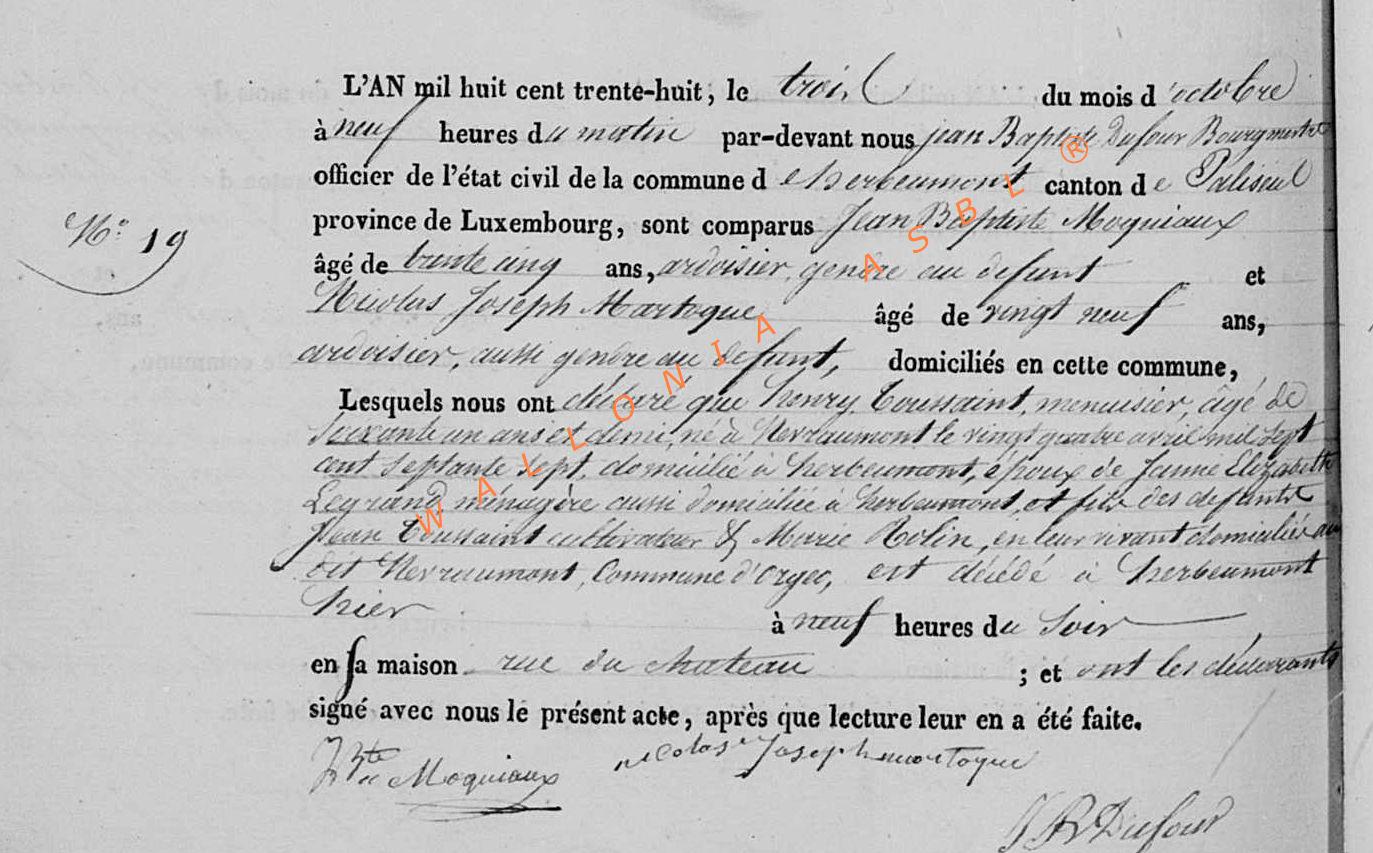 L'AN mil huit cent trente-huit, le trois du mois d'octobre
à neuf heures du matin par-devant nous jean Baptiste Dufour Bourgmestre
officier de l'état civil de la commune d'herbeumont canton de Paliseul
N.° 19
province de Luxembourg, sont comparus Jean Baptiste Moquiaux
âgé de trente cinq ans, ardoisier, gendre au defunt et
Nicolas Joseph Martoque âgé de vingt neuf ans,
ardoisier, aussi gendre au defunt, domiciliés en cette commune,
Lesquels nous ont déclaré que henry Toussaint, menuisier, âgé de
soixante un ans et demi, né à Nevraumont le vingt quatre avril mil sept
cent septante sept, domicilié à herbeumont, époux de Jeanne Elizabeth
Legrand, ménagère aussi domiciliée à herbeumont, et fils des defunts
Jean Toussaint cultivateur & Marie Rolin, en leur vivant domiciliés au
dit Nevraumont, Commune d'Orgeo, est décédé à herbeumont
hier à neuf heures du soir
en sa maison rue du chateau ; et ont les déclarants
signé avec nous le présent acte, après que lecture leur en a été faite.
JBte Moquiaux nicolas Joseph martoque
JB Dufour
WALLONIA ASBL ®